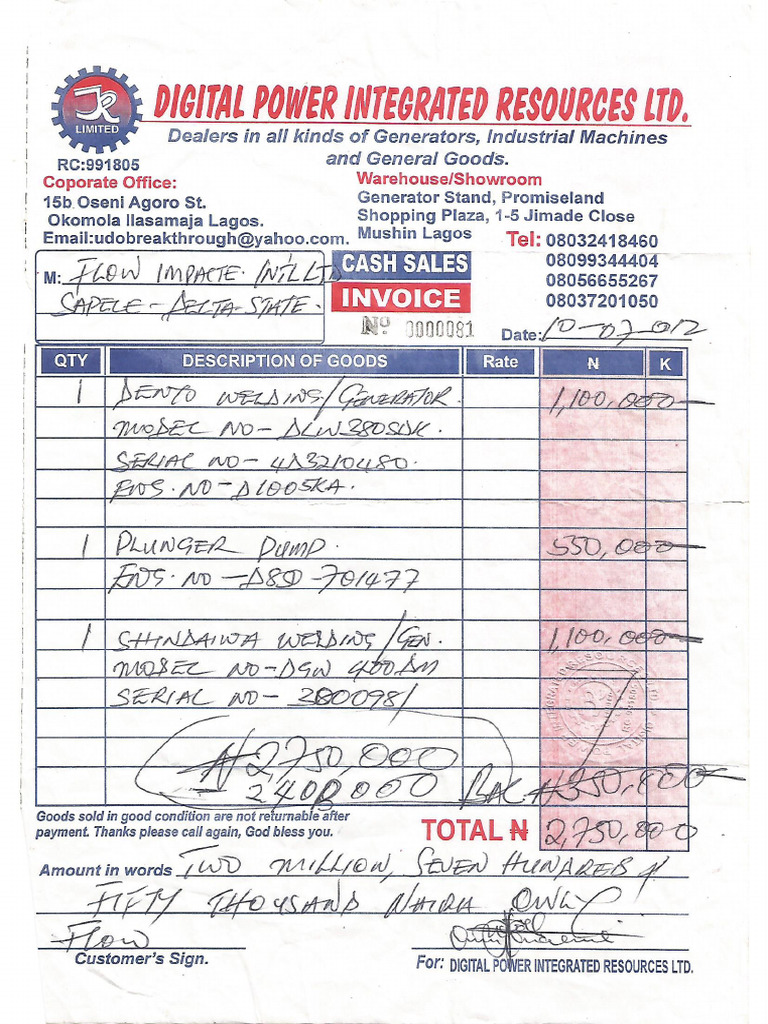 JR
LIMITED
DIGITAL POWER INTEGRATED RESOURCES LTD.
Dealers in all kinds of Generators, Industrial Machines
and General Goods.
RC:991805
Coporate Office:
15b Oseni Agoro St.
Okomola Ilasamaja Lagos.
Email:udobreakthrough@yahoo.com.
Warehouse/Showroom
Generator Stand, Promiseland
Shopping Plaza, 1-5 Jimade Close
Mushin Lagos
Tel: 08032418460
08099344404
08056655267
08037201050
M: FLOW IMPACTE INT'L LTD
SAPELE - DELTA STATE.
CASH SALES
INVOICE
No 0000081
Date: 10-07-012
QTY DESCRIPTION OF GOODS Rate ₦ K
1 DENYO WELDING/GENERATOR 1,100,000
MODEL NO - DLW380SDK.
SERIAL NO - 4D3210480.
ENG. NO - D1005KA.
1 PLUNGER PUMP. 550,000
ENG. NO - D8D-701477
1 SHINDAIWA WELDING/GEN. 1,100,000
MODEL NO - DGW 400DM
SERIAL NO - 3800981
₦2,750,000
- 2400000 BAL ₦350,000
Goods sold in good condition are not returnable after
payment. Thanks please call again, God bless you.
TOTAL ₦ 2,750,000
Amount in words TWO MILLION, SEVEN HUNDRED &
FIFTY THOUSAND NAIRA ONLY
Flow
Customer's Sign.
For: DIGITAL POWER INTEGRATED RESOURCES LTD.